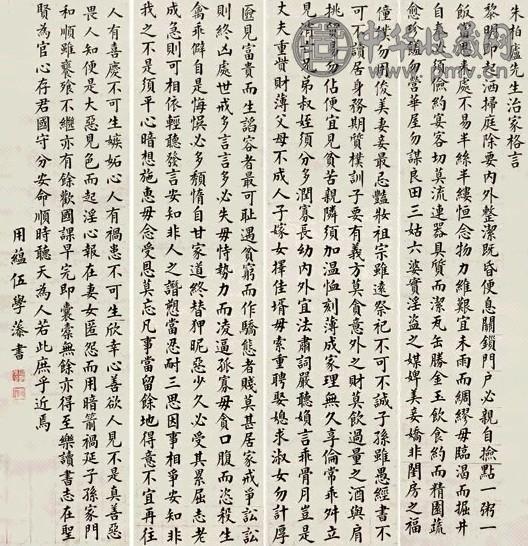 朱柏廬先生治家格言
黎明即起洒掃庭除要內外整潔既昏便息關鎖門戶必親自撿點一粥一
飯當思來處不易半絲半縷恒念物力維艱宜未雨而綢繆毋臨渴而掘井
自奉必須儉約宴客切莫流連器具質而潔瓦缶勝金玉飲食約而精園蔬
愈珍饈勿營華屋勿謀良田三姑六婆實淫盜之媒婢美妾嬌非閨房之福
僮僕勿用俊美妻妾最忌豔妝祖宗雖遠祭祀不可不誠子孫雖愚經書不
可不讀居身務期質樸訓子要有義方莫貪意外之財莫飲過量之酒與肩
挑貿易勿佔便宜見貧苦親鄰須加溫恤刻薄成家理無久享倫常乖舛立
見消亡兄弟叔姪須分多潤寡長幼內外宜法肅詞嚴聽婦言乖骨肉豈是
丈夫重貲財薄父母不成人子嫁女擇佳壻毋索重聘娶媳求淑女勿計厚
奩見富貴而生諂容者最可恥遇貧窮而作驕態者賤莫甚居家戒爭訟訟
則終凶處世戒多言言多必失毋恃勢力而凌逼孤寡毋貪口腹而恣殺生
禽乖僻自是悔悮必多頹惰自甘家道終替狎昵惡少久必受其累屈志老
成急則可相依輕聽發言安知非人之譖愬當忍耐三思因事相爭安知非
我之不是須平心暗想施惠毋念受恩莫忘凡事當留餘地得意不宜再往
人有喜慶不可生嫉妬心人有禍患不可生欣幸心善欲人見不是真善惡
畏人知便是大惡見色而起淫心報在妻女匿怨而用暗箭禍延子孫家門
和順雖饔飧不繼亦有餘歡國課早完即囊橐無餘亦得至樂讀書志在聖
賢為官心存君國守分安命順時聽天為人若此庶乎近焉
用縕伍學藻書
中华收藏网
www.pmv.cn